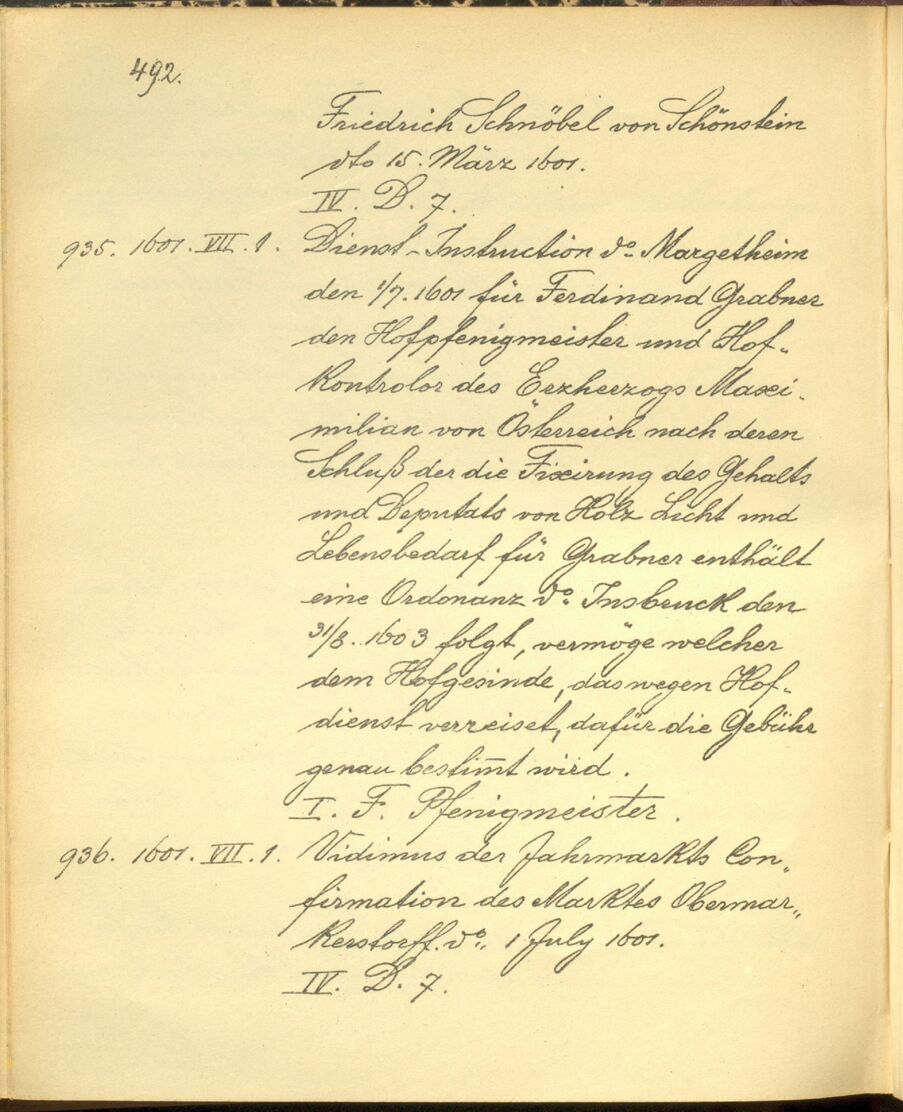 492.
Friedrich Schnöbel von Schönstein
dto 15. März 1601.
IV. D. 7.
935. 1601. VII. 1. Dienst-Instruction do Margetheim
den 1/7. 1601 für Ferdinand Grabner
den Hofpfenigmeister und Hof„
Kontrolor des Erzherzogs Maxi„
milian von Österreich nach deren
Schluß der die Fixirung des Gehalts
und Deputats von Holz Licht und
Lebensbedarf für Grabner enthält
eine Ordonanz do. Insbruck den
31/8. 1603 folgt, vermöge welcher
dem Hofgesinde, das wegen Hof„
dienst verreiset, dafür die Gebühr
genau bestim̅t wird.
I. F. Pfenigmeister.
936. 1601. VII. 1. Vidimus der Jahrmarkts Con„
firmation des Marktes Obermar„
kerstorff. do„ 1 July 1601.
IV. D. 7.